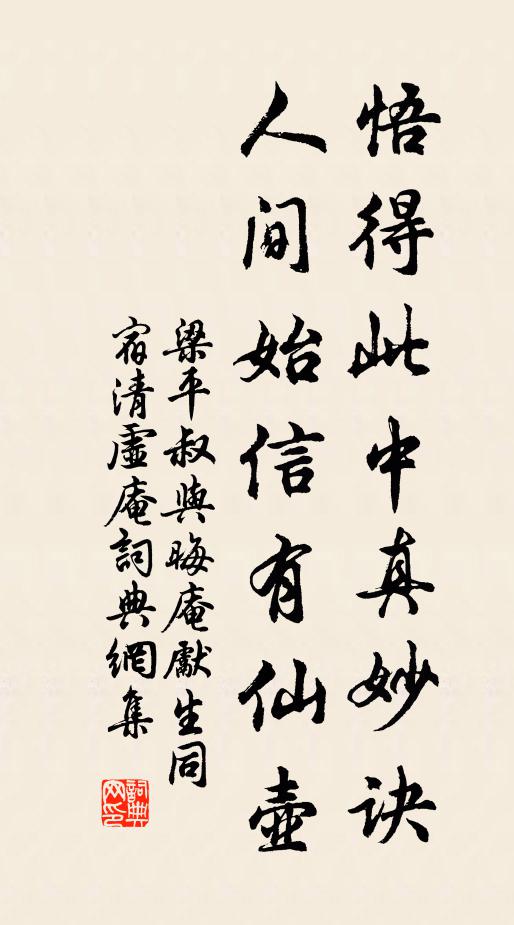 悟得此中真妙诀
人间始信有仙壶
梁平叔與晦庵獻生同
宿清虛庵詞典網集
詞典网印